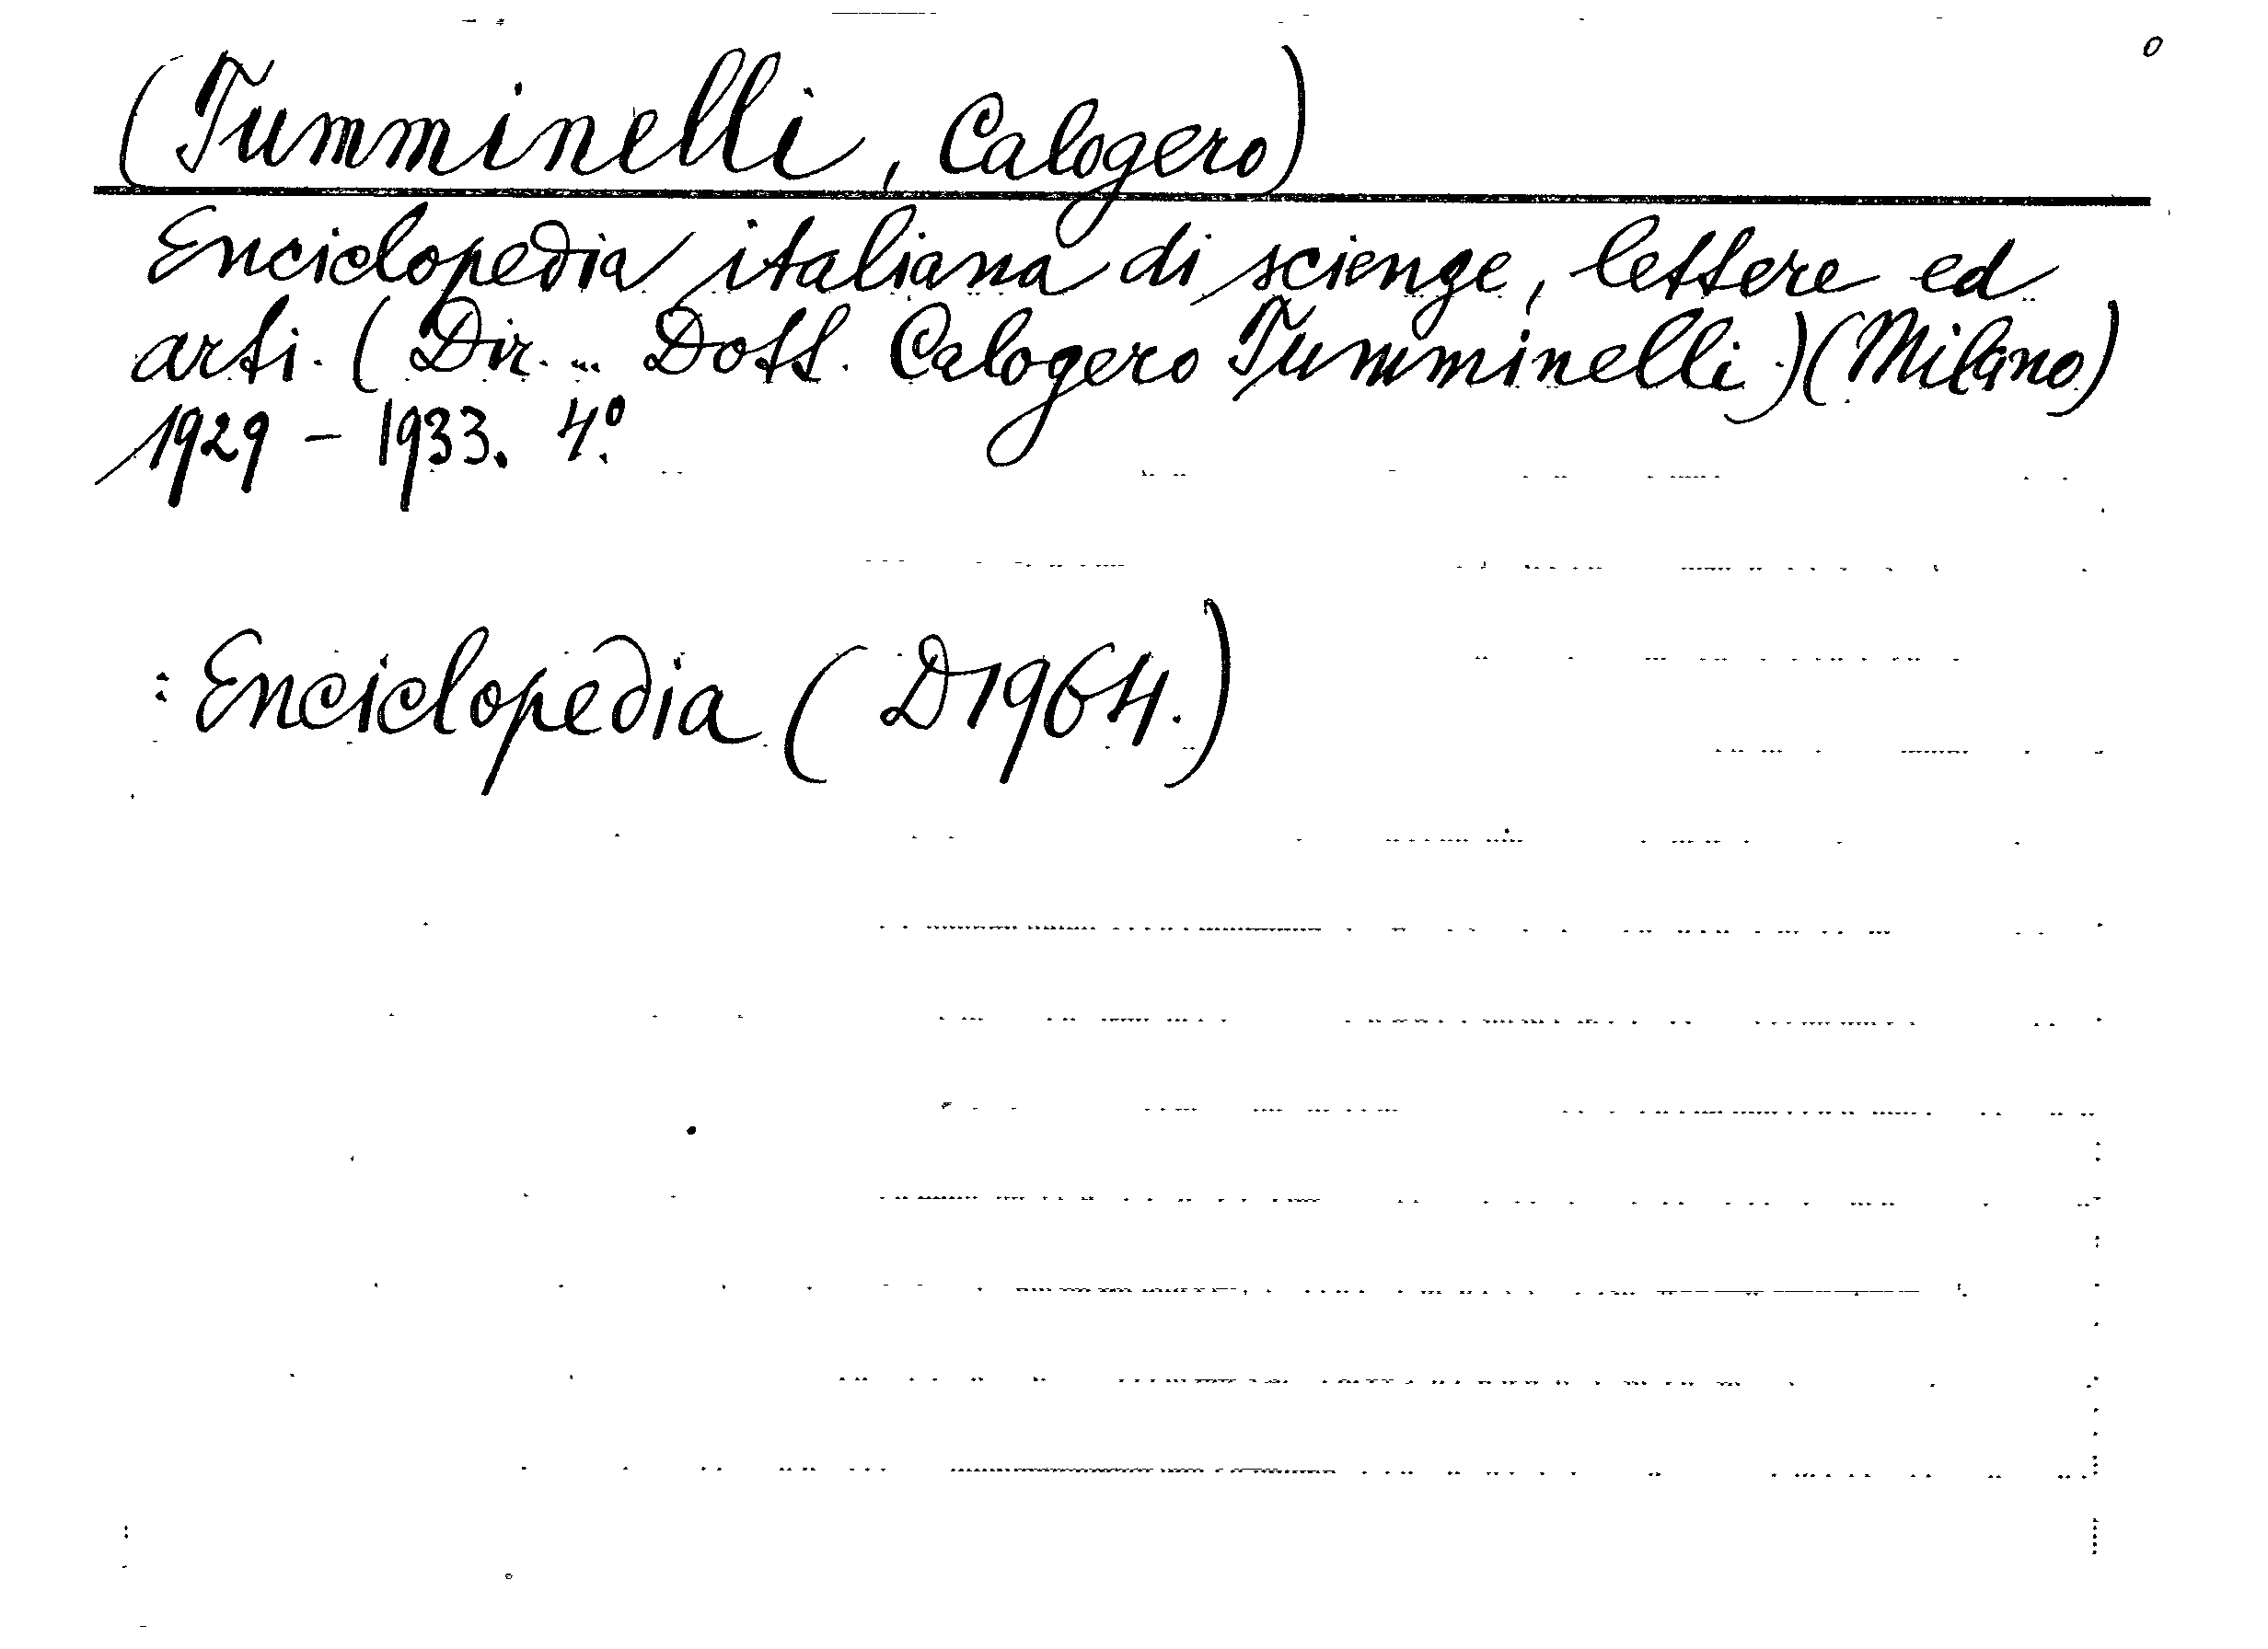 (Tumminelli, Calogero)
Enciclopedia italiana di scienze, lettere ed
arti. (Dir. ... Dott. Calogero Tumminelli.) (Milano)
1929 – 1933. 4º.
: Enciclopedia (D1964.)